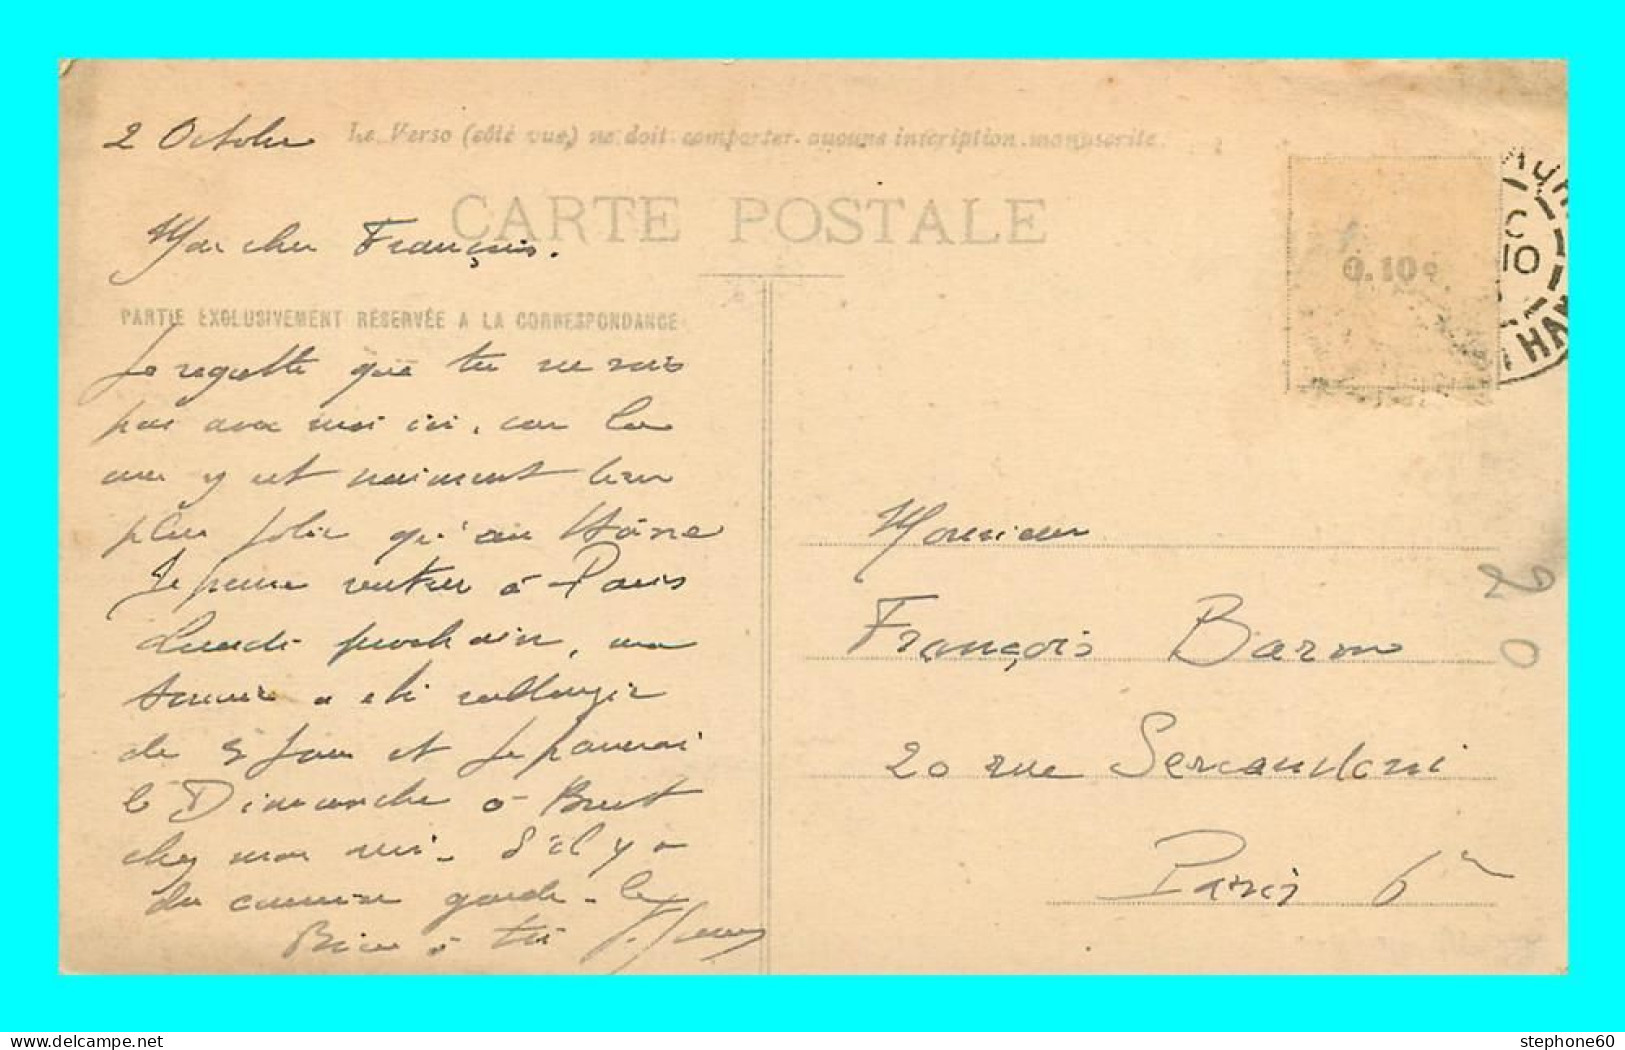 2 Octobre
Le Verso (côté vue) ne doit comporter aucune inscription manuscrite.
CARTE POSTALE
Mon cher François.
PARTIE EXCLUSIVEMENT RÉSERVÉE A LA CORRESPONDANCE
Je regrette que tu ne sois
pas avec moi ici, car la
mer y est vraiment bien
plus jolie qu'au Hâvre
Je pense rentrer à Paris
Lundi prochain, ma
a été rallongée
de 5 jours et je passerai
le Dimanche à Brest
chez mon ami. S'il y a
du courrier garde-le
Bien à toi
0.10
10
THAN
Monsieur
François Baron
20 rue Servandoni
Paris 6e
20
stephone60